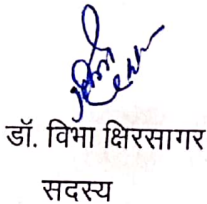 डॉ. विभा क्षिरसागर
सदस्य